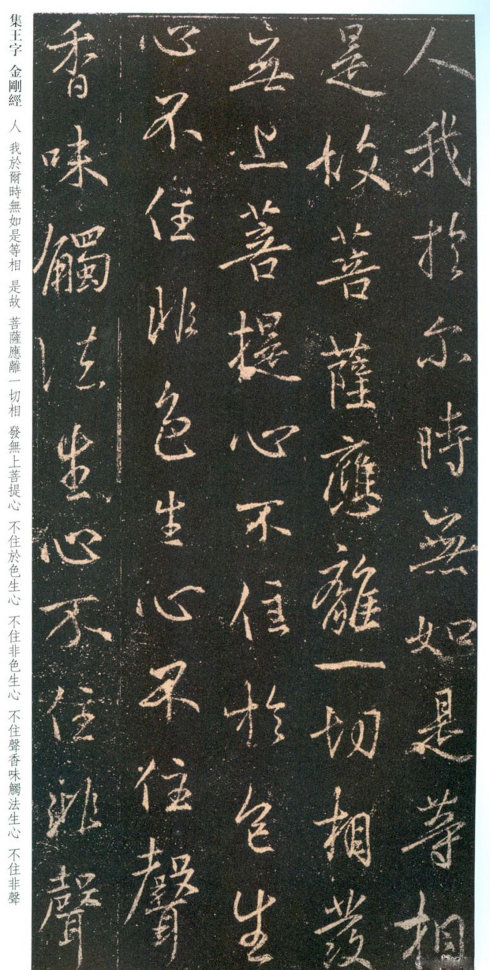 人我於尓時無如是等相
是故菩薩應離一切相發
無上菩提心不住於色生
心不住非色生心不住聲
香味觸法生心不住非聲
集王字 金剛經 人 我於爾時無如是等相 是故 菩薩應離一切相 發無上菩提心 不住於色生心 不住非色生心 不住聲香味觸法生心 不住非聲